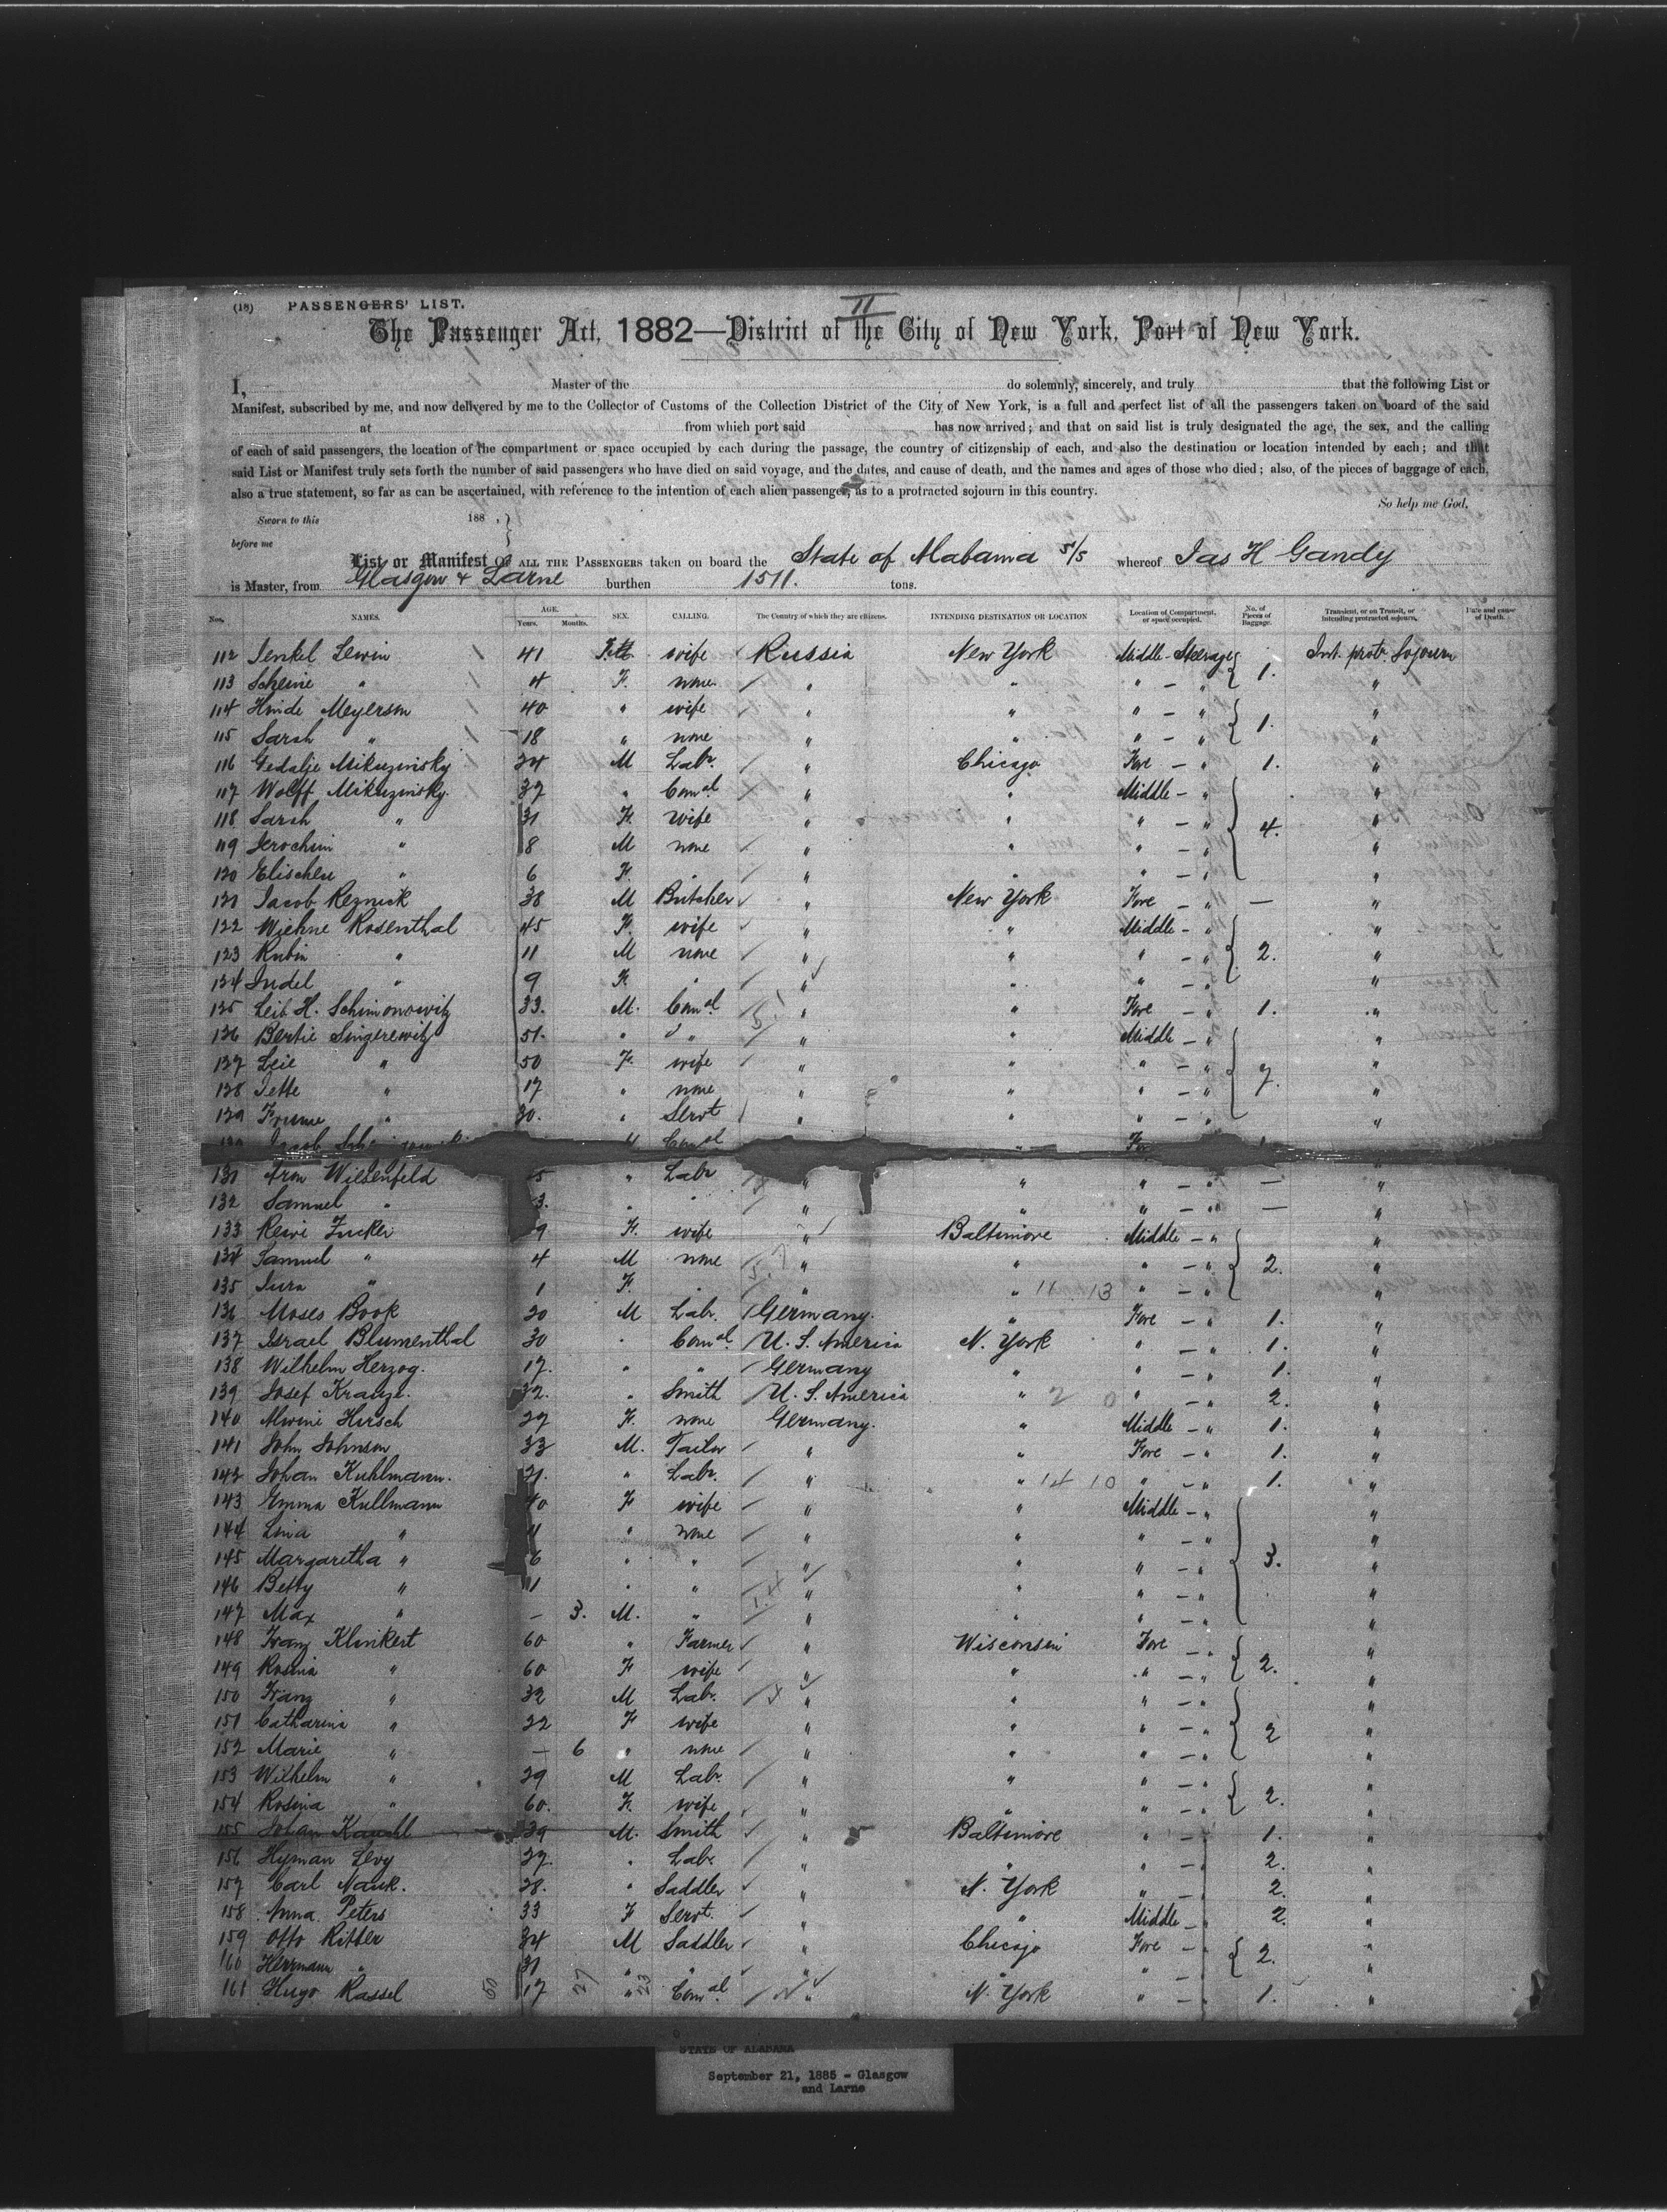 (18) PASSENGERS' LIST.
II
The Passenger Act, 1882—District of the City of New York, Port of New York.
I, Master of the do solemnly, sincerely, and truly that the following List or
Manifest, subscribed by me, and now delivered by me to the Collector of Customs of the Collection District of the City of New York, is a full and perfect list of all the passengers taken on board of the said
at from which port said has now arrived; and that on said list is truly designated the age, the sex, and the calling
of each of said passengers, the location of the compartment or space occupied by each during the passage, the country of citizenship of each, and also the destination or location intended by each; and that
said List or Manifest truly sets forth the number of said passengers who have died on said voyage, and the dates, and cause of death, and the names and ages of those who died; also, of the pieces of baggage of each,
also a true statement, so far as can be ascertained, with reference to the intention of each alien passenger, as to a protracted sojourn in this country.
So help me God.
Sworn to this 188 ,
before me
List or Manifest OF ALL THE PASSENGERS taken on board the State of Alabama S/S whereof Jas H Gandy
is Master, from Glasgow & Larne burthen 1511. tons.
Nos. NAMES. AGE. Years. Months. SEX. CALLING. The Country of which they are citizens. INTENDING DESTINATION OR LOCATION Location of Compartment, or space occupied. No. of Pieces of Baggage. Transient, or on Transit, or Intending protracted sojourn. Date and cause of Death.
112 Senkel Lewin 41 wife Russia New York Middle - Steerage 1. Int. prot. Sojourn
113 Scheine " 4 F. none " " " - " "
114 Hinde Meyerson 40 " wife " " " - " 1. "
115 Sarah " 18 " none " " " - " "
116 Gedalje Mikuzinsky 24 M Labr. " Chicago Fore - " 1. "
117 Wolff Mikuzinsky. 37 " Comal " " Middle - " 4. "
118 Sarah " 31 F. wife " " " - " "
119 Jerochim " 8 M none " " " - " "
120 Elischeu " 6 F. " " " " - " "
121 Jacob Reznick 38 M Butcher " New York Fore - " — "
122 Wiehne Rosenthal 45 F. wife " " Middle - " 2. "
123 Rubin " 11 M none " " " - " "
124 Judel " 9 F. " " " " - " "
125 Leib H. Schimonowitz 33. M. Comal " " Fore - " 1. "
126 Bertie Singerewitz 51. " " " " Middle - " 7. "
127 Leie " 50 F. wife " " " - " "
128 Jette " 17 " none " " " - " "
129 Frume " 20. " Servt " " " - " "
Jacob Comal
131 Aron Wiesenfeld " Labr " " " - " — "
132 Samuel " " " " " " - " — "
133 Rewi Zucker F. wife " Baltimore Middle - " 2. "
134 Samuel " 4 M none " " " - " "
135 Sura " 1 F. " " " 11 13 " - " "
136 Moses Book 20 M Labr. Germany. " Fore - " 1. "
137 Israel Blumenthal 30 " Comal. U. S. America N. York " - " 1. "
138 Wilhelm Herzog. 17. " " Germany " " - " 1. "
139 Josef Krauze. 32. " Smith U. S. America " 2 0 " - " 2. "
140 Alwine Hirsch 27 F. none Germany. " Middle - " 1. "
141 John Johnson 33 M. Tailor " " Fore - " 1. "
142 Johan Kuhlmann. 21. " Labr. " " 14 10 " - " 1. "
143 Emma Kullmann 40 F wife " " Middle - " 3. "
144 Lina " 11 " none " " " - " "
145 Margaretha " 6 " " " " " - " "
146 Betty " " " " " " - " "
147 Max " — 3. M. " " " " - " "
148 Franz Klinkert 60 " Farmer " Wisconsin Fore - " 2. "
149 Rosina " 60 F wife " " " - " "
150 Franz " 32 M Labr. " " " - " 2 "
151 Catharina " 22 F wife " " " - " "
152 Marie " — 6 " none " " " - " "
153 Wilhelm " 29 M Labr. " " " - " 2. "
154 Rosina " 60. F. wife " " " - " "
155 Johan 39 M. Smith " Baltimore " - " 1. "
156 Hyman Levy 27. " Labr. " " " - " 2. "
157 Carl Nauk. 28. " Saddler " N. York " - " 2. "
158 Anna Peters 33 F Servt. " " Middle - " 2. "
159 Otto Ritter 34 M Saddler " Chicago Fore - " 2. "
160 Herrmann " 31 " " " " " - " "
161 Hugo Rassel 50 17 27 " 23 Comal " N. York " - " 1. "
STATE OF ALABAMA
September 21, 1885 - Glasgow
and Larne